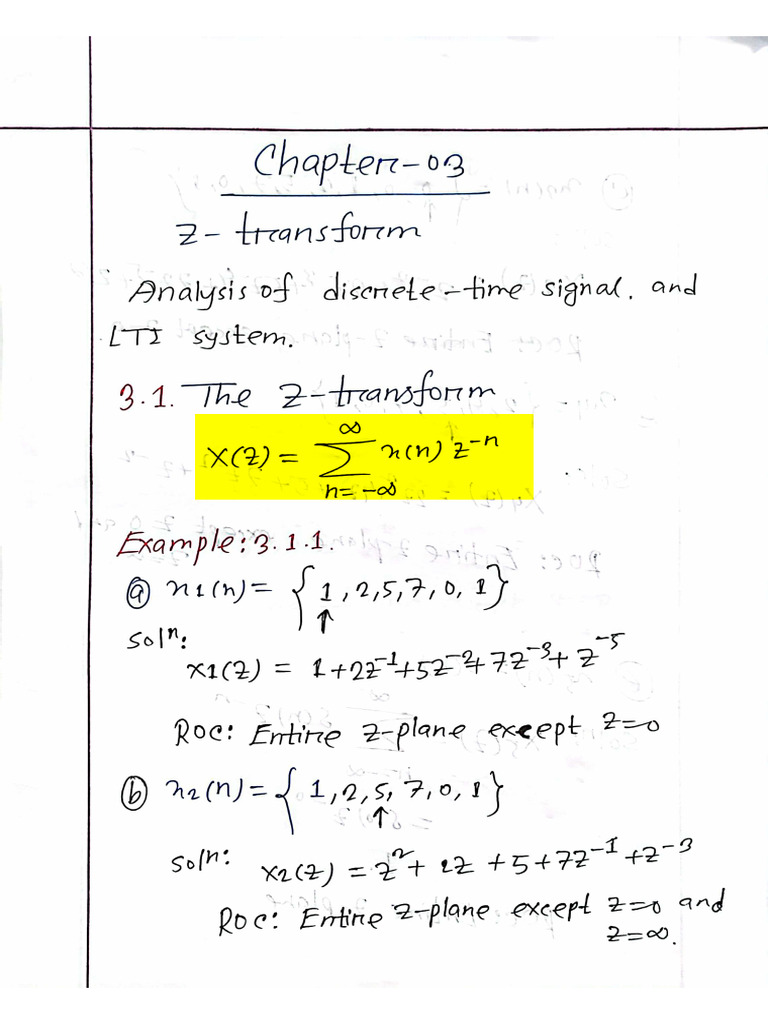 Chapter-03
Z-transform
Analysis of discrete-time signal. and
LTI system.
3.1. The Z-transform
X(Z) = ∞ Σ n=-∞ x(n) z⁻ⁿ
Example: 3.1.1.
ⓐ x1(n) = {1, 2, 5, 7, 0, 1}
↑
Solⁿ:
X1(Z) = 1+2z⁻¹+5z⁻²+7z⁻³+z⁻⁵
ROC: Entire z-plane except z=0
ⓑ x2(n) = {1, 2, 5, 7, 0, 1}
↑
Solⁿ: X2(Z) = z²+2z+5+7z⁻¹+z⁻³
ROC: Entire z-plane except z=0 and
z=∞.